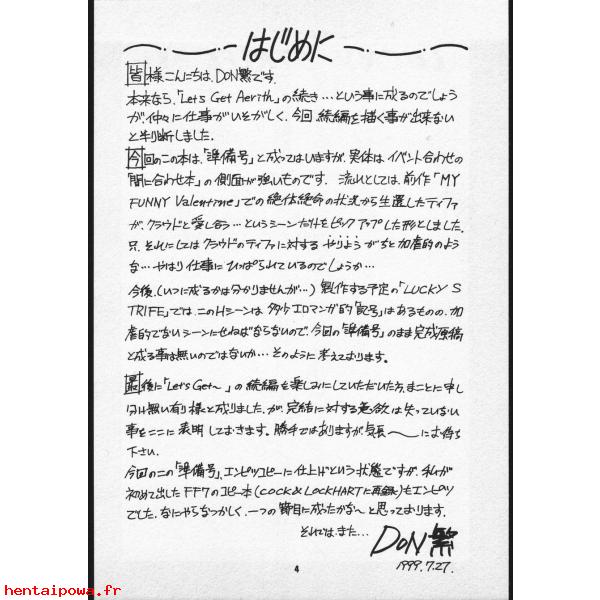 はじめに
皆様、こんにちは、DON繁です。
本来なら、「Let's Get Aerith」の続き…という事に成るのでしょう
が、仲々に仕事がいそがしく、今回、続編を描く事が出来ない
と判断しました。
今回のこの本は、「準備号」と成ってはいますが、実体は、イベント合わせの
「間に合わせ本」の側面が強いものです。流れとしては、前作「MY
FUNNY Valentine」での絶体絶命の状況から生還したティファ
が、クラウドと愛し合う…というシーンだけをピックアップした形としました。
只、それにしてはクラウドのティファに対するやりようがちと加虐的のよう
な…やはり仕事にひっぱられているのでしょうか…
今後、(いつに成るかは分かりませんが…)製作する予定の「LUCKY S
TRIFE」では、このHシーンは多少エロマンガ的「記号」はあるものの、加
虐的でないシーンにせねばならないので、今回の「準備号」のまま完成原稿
と成る事は無いのではないか…そのように考えております。
最後に「Let's Get〜」の続編を楽しみにしていただいた方、まことに申し
分け無い有り様と成りました。が、完結に対する意欲は失っていない
事をここに表明しておきます。勝手ではありますが、気長〜にお待ち
下さい。
今回のこの「準備号」、エンピツコピーに仕上げという状態ですが、私が
初めて出したFF7のコピー本(COCK&LOCKHARTに再録)もエンピツ
でした。なにやらなつかしく、一つの節目に成ったかな〜と思っております。
それでは、また…
DON繁
1999.7.27.
4
hentaipowa.fr